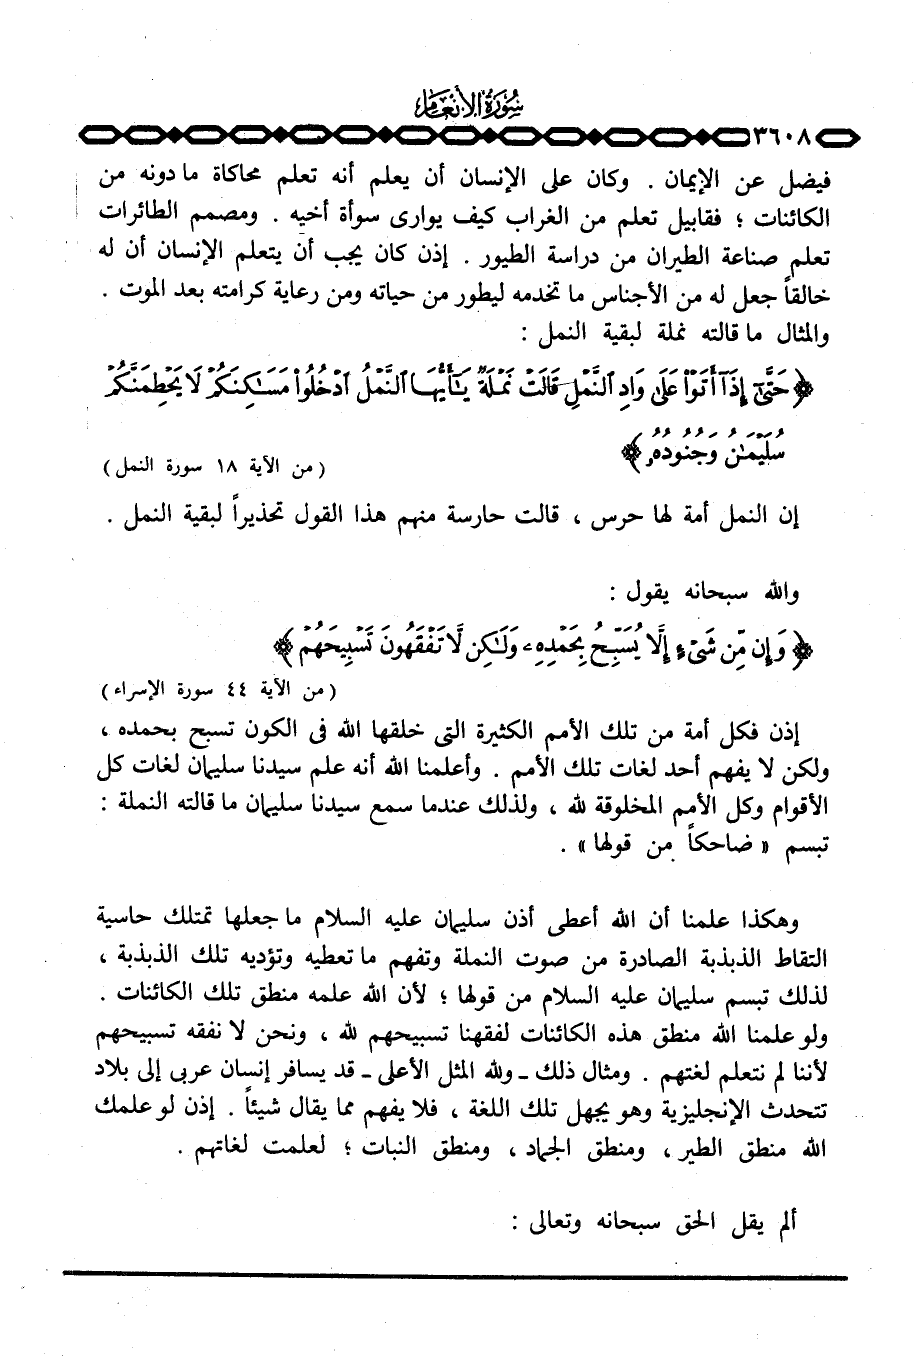 سُورَةُ الأنْعَام
٣٦٠٨
فيضل عن الإيمان . وكان على الإنسان أن يعلم أنه تعلم محاكاة ما دونه من
الكائنات ؛ فقابيل تعلم من الغراب كيف يوارى سوأة أخيه . ومصمم الطائرات
تعلم صناعة الطيران من دراسة الطيور . إذن كان يجب أن يتعلم الإنسان أن له
خالقاً جعل له من الأجناس ما تخدمه ليطور من حياته ومن رعاية كرامته بعد الموت .
والمثال ما قالته نملة لبقية النمل :
﴿ حَتَّىٰٓ إِذَآ أَتَوْاْ عَلَىٰ وَادِ ٱلنَّمْلِ قَالَتْ نَمْلَةٌ يَٰٓأَيُّهَا ٱلنَّمْلُ ٱدْخُلُواْ مَسَٰكِنَكُمْ لَا يَحْطِمَنَّكُمْ
سُلَيْمَٰنُ وَجُنُودُهُۥ ﴾
( من الآية ١٨ سورة النمل )
إن النمل أمة لها حرس ، قالت حارسة منهم هذا القول تحذيراً لبقية النمل .
والله سبحانه يقول :
﴿ وَإِن مِّن شَىْءٍ إِلَّا يُسَبِّحُ بِحَمْدِهِۦ وَلَٰكِن لَّا تَفْقَهُونَ تَسْبِيحَهُمْ ﴾
( من الآية ٤٤ سورة الإسراء )
إذن فكل أمة من تلك الأمم الكثيرة التى خلقها الله فى الكون تسبح بحمده ،
ولكن لا يفهم أحد لغات تلك الأمم . وأعلمنا الله أنه علم سيدنا سليمان لغات كل
الأقوام وكل الأمم المخلوقة لله ، ولذلك عندما سمع سيدنا سليمان ما قالته النملة :
تبسم « ضاحكاً من قولها » .
وهكذا علمنا أن الله أعطى أذن سليمان عليه السلام ما جعلها تمتلك حاسية
التقاط الذبذبة الصادرة من صوت النملة وتفهم ما تعطيه وتؤديه تلك الذبذبة ،
لذلك تبسم سليمان عليه السلام من قولها ؛ لأن الله علمه منطق تلك الكائنات .
ولو علمنا الله منطق هذه الكائنات لفقهنا تسبيحهم لله ، ونحن لا نفقه تسبيحهم
لأننا لم نتعلم لغتهم . ومثال ذلك ـ ولله المثل الأعلى ـ قد يسافر إنسان عربى إلى بلاد
تتحدث الإنجليزية وهو يجهل تلك اللغة ، فلا يفهم مما يقال شيئاً . إذن لو علمك
الله منطق الطير ، ومنطق الجماد ، ومنطق النبات ؛ لعلمت لغاتهم .
ألم يقل الحق سبحانه وتعالى :